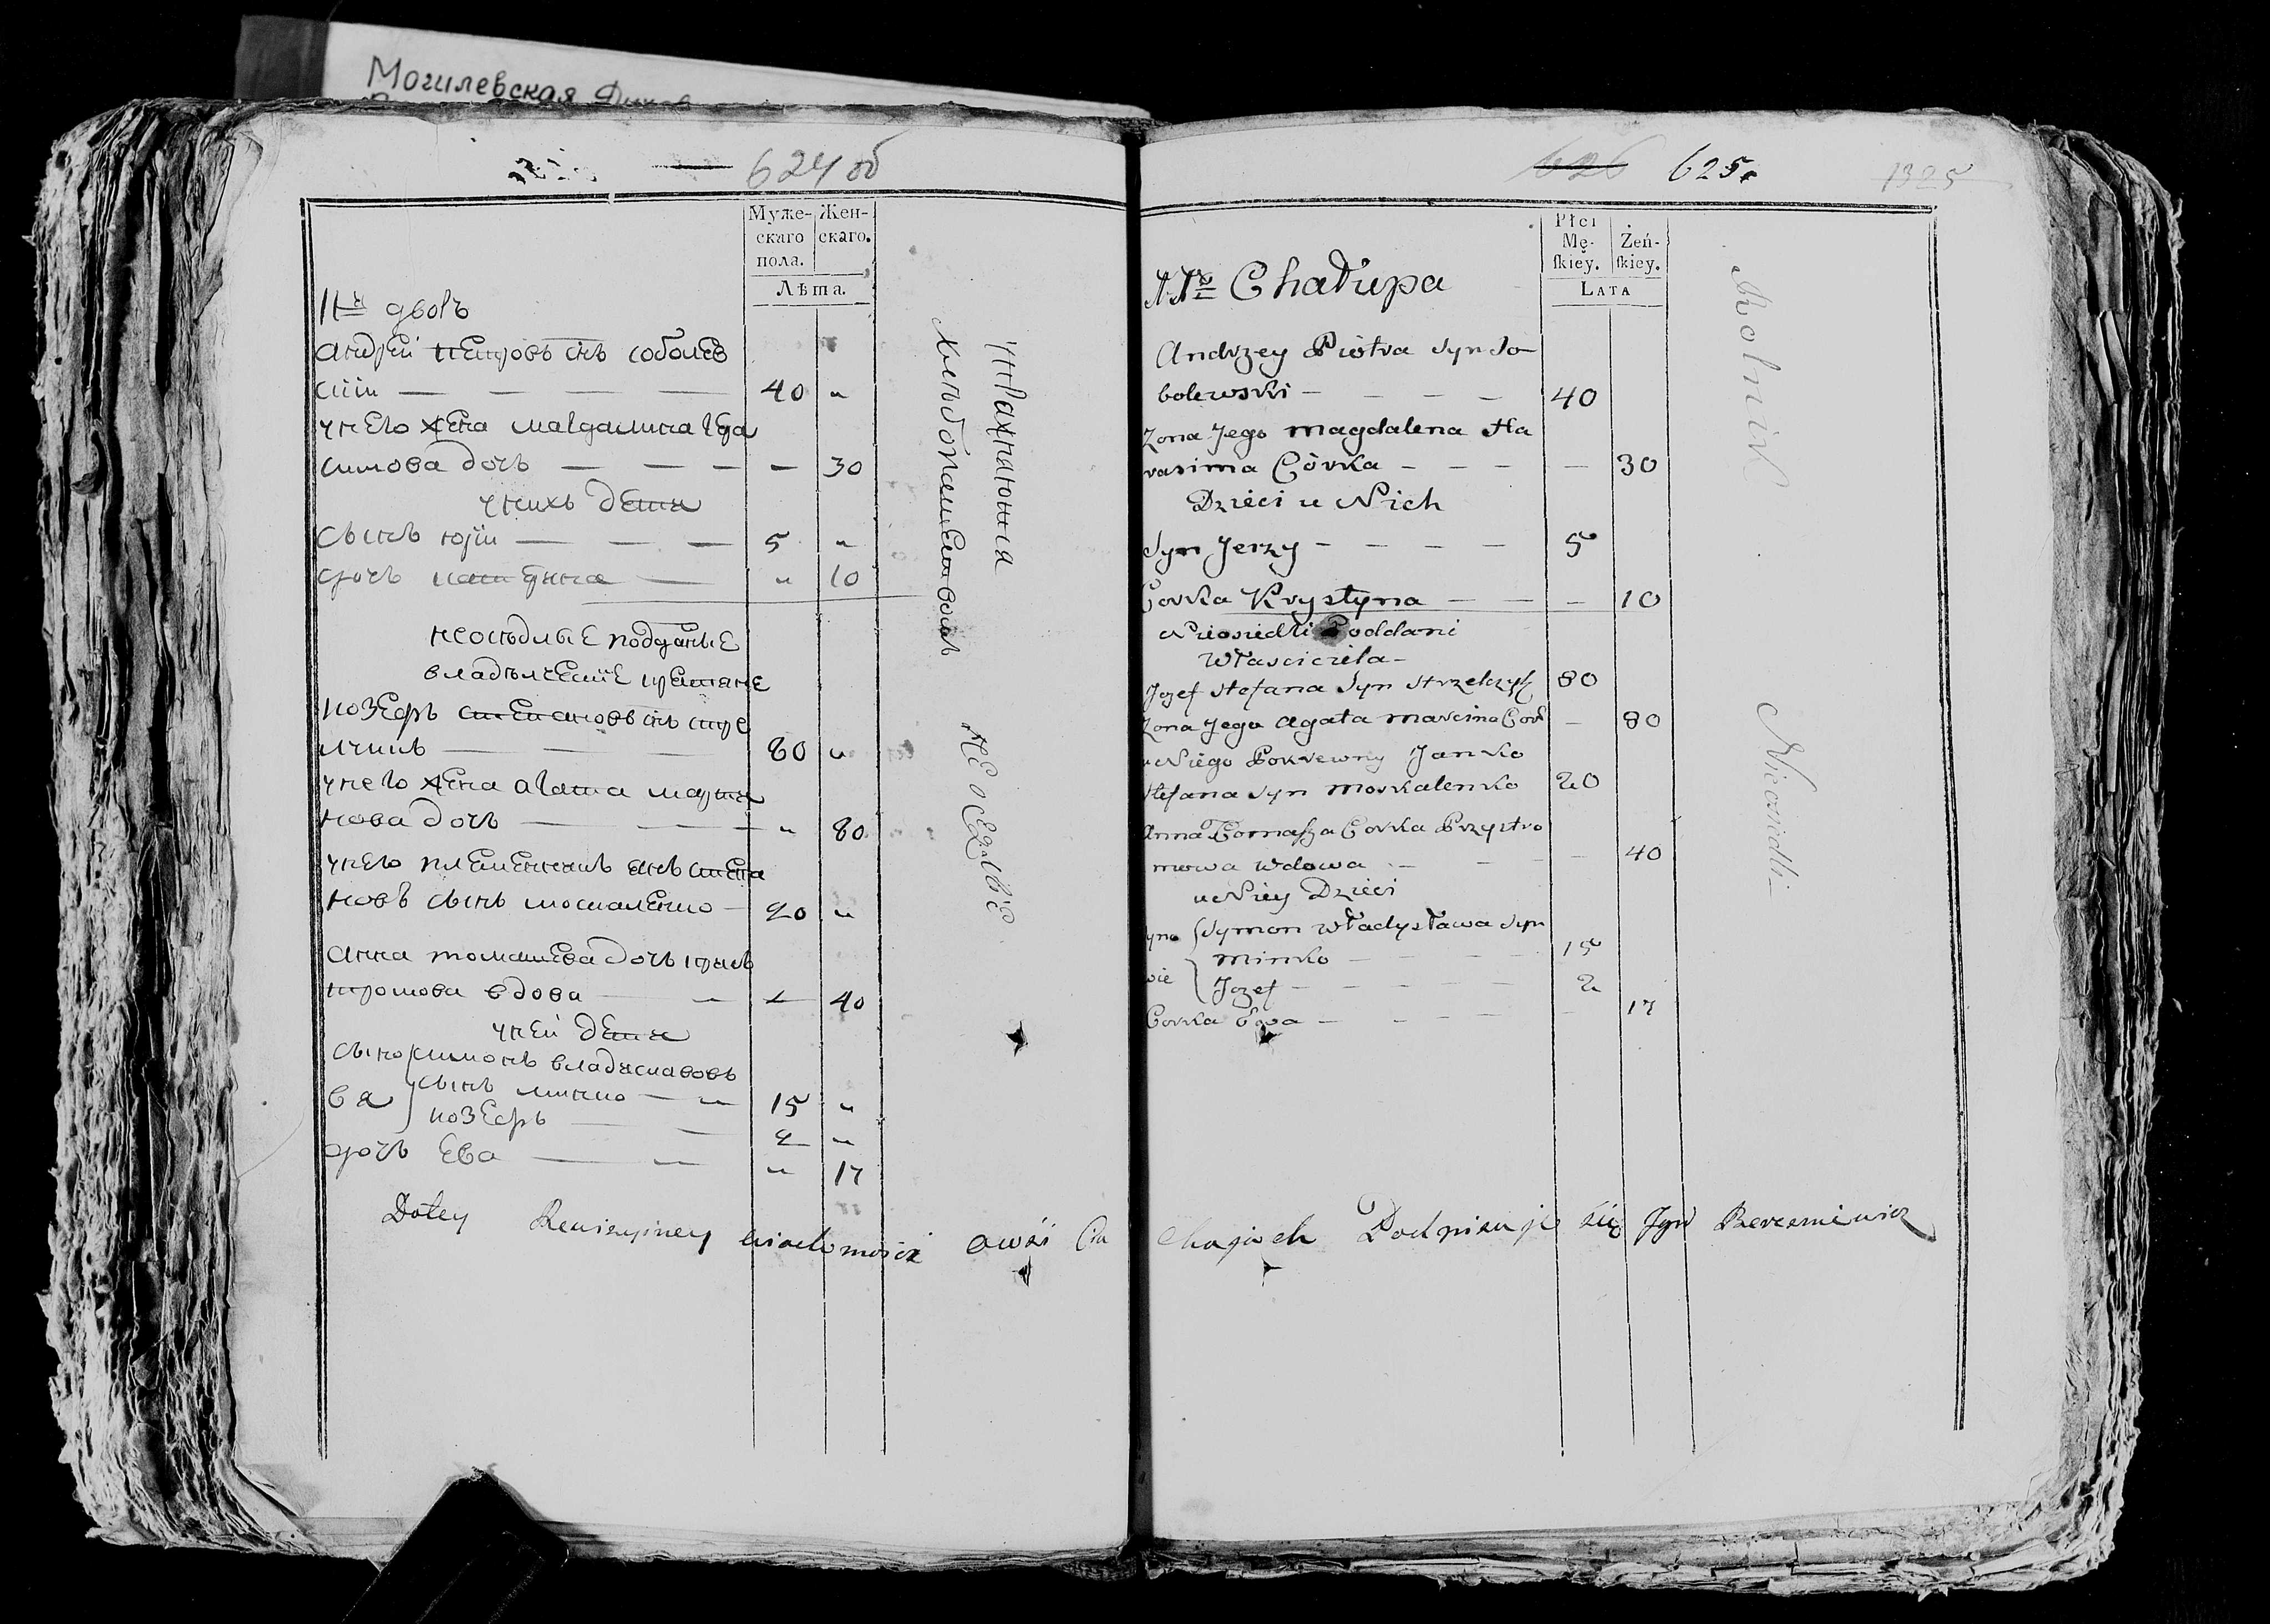 Могилевская
624 об
Муже-
скаго
пола.
Жен-
скаго.
Лѣта.
1й дворъ
Андрей Петровъ снъ Соболев
скій — — — — 40 „
у него жена Магдалина Гера
симова дочь — — — — 30
у нихъ дети
сынъ Юрій — — — 5 „
дочь Кристина — „ 10
неоседлые подданые
владѣлческіе крестяне
Іозефъ Степановъ снъ Стре
лчикъ — — — 80 „
у него жена Агата Марти
нова дочь — — — „ 80
у него племенникъ Янъ Степа
новъ сынъ Москаленко — 20 „
Анна Томашева дочь Прыс
тромова вдова — — — 40
у ней дети
сыно Симонъ Владиславовъ
сынъ Минко — „ 15 „
вя Іозефъ — — 2 „
дочь Ева — — „ 17
упражняются
хлѣбопашествомъ
неоседліе
626 625.
1325
Płci
Mę-
skiey.
Żeń-
skiey.
LATA
Chałupa
Andrzey Piotra Syn So-
bolewski — — — — 40
Zona Jego Magdalena Ha
rasima Córka — — — — 30
Dzieci u Nich
Syn Jerzy — — — — 5
Corka Krystyna — — — 10
Nieosiedli Poddani
Własciciela —
Jozef Stefana Syn Strzelczyk 80
Zona Jego Agata Marcina Cork — 80
u Niego Pokrewny Janko
Stefana Syn Moskalenko 20
Anna Tomasza Corka Przystro
mowa Wdowa — — — — 40
u Niey Dzieci
yno Symon Władysława Syn
Minko — — — — 15
wie Jozef — — — — — 2
Corka Ewa — — — — — 17
Rolnik
Nieosiedli —
Do tey Rewizyiney wiadomości o wsi Podpisuje się